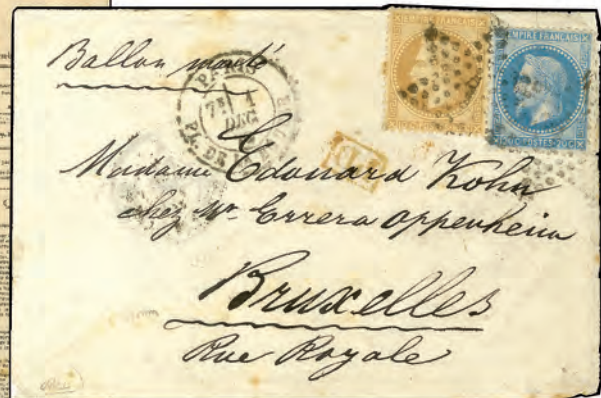 Ballon monté
PARIS
7E 1
DEC
PL. DE LA BOURSE
EMPIRE FRANÇAIS
EMPIRE FRANÇAIS
POSTES 20 C
P.P.
Madame Edouard Kohn
chez Mr Errera Oppenheim
Bruxelles
Rue Royale